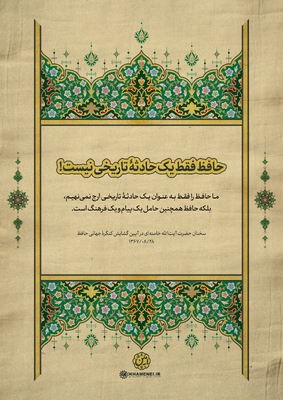 حافظ فقط یک حادثهٔ تاریخی نیست!
ما حافظ را فقط به عنوان یک حادثهٔ تاریخی ارج نمی‌نهیم،
بلکه حافظ همچنین حامل یک پیام و یک فرهنگ است.
سخنان حضرت آیت‌الله خامنه‌ای در آیین گشایش کنگرهٔ جهانی حافظ
۱۳۶۷/۰۸/۲۸
KHAMENEI.IR